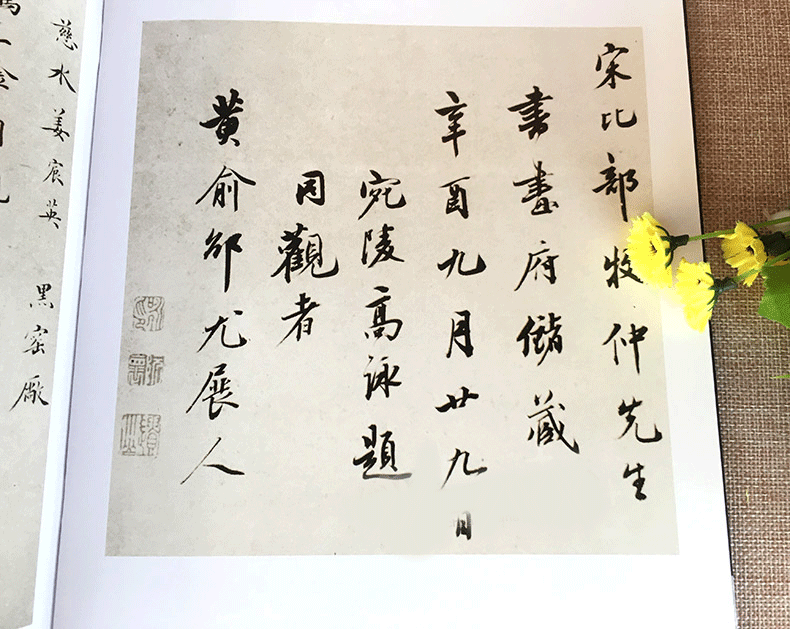 宋比部牧仲先生
書畫府儲藏
辛酉九月廿九日
宛陵高詠題
同觀者
黃俞邰尤展人
慈水姜宸英
黑窑廠